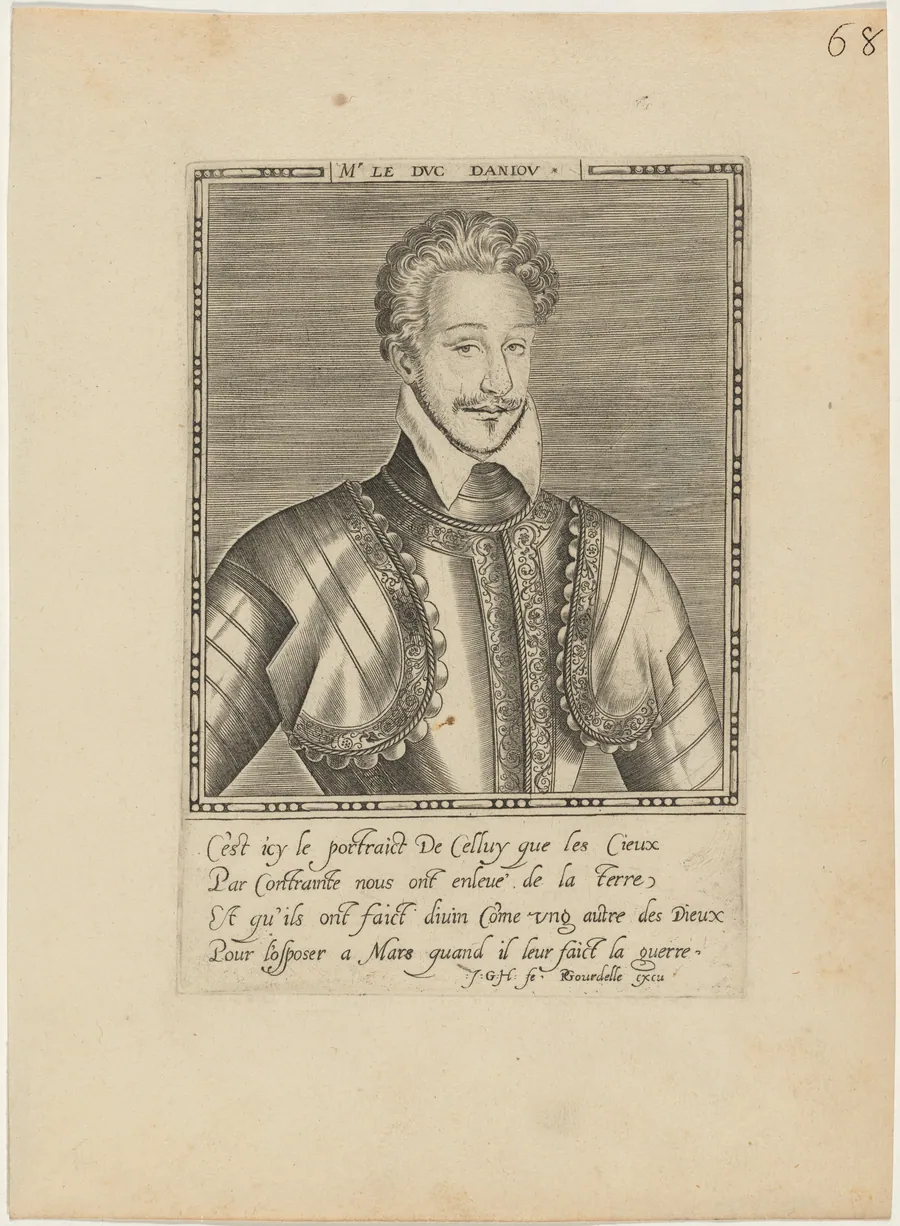 68
Mr LE DVC DANIOV *
C'est icy le portraict De Celluy que les Cieux
Par Contrainte nous ont enleue'. de la terre
Et qu'ils ont faict diuin Cõme vng autre des Dieux
Pour l'oposer a Mars quand il leur faict la guerre.
:J:G:H: fe. PGourdelle excu